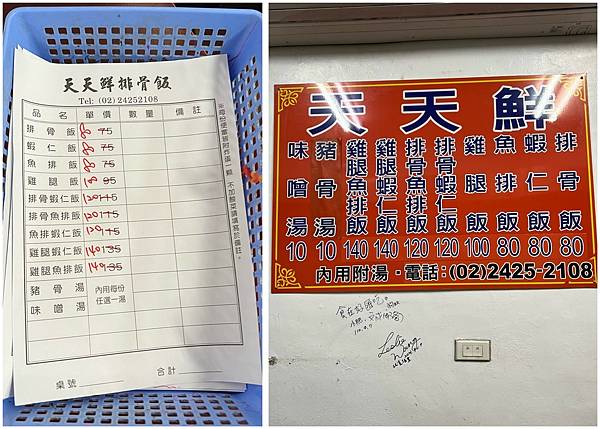 天天鮮排骨飯
Tel: (02) 24252108
品名 單價 數量 備註
排骨飯 80 75
蝦仁飯 80 75
魚排飯 80 75
雞腿飯 95
排骨蝦仁飯 120 115
排骨魚排飯 120 115
魚排蝦仁飯 120 115
雞腿蝦仁飯 140 135
雞腿魚排飯 140 135
豬骨湯 內用每份
味噌湯 任選一湯
桌號 合計
※每份便當皆附炸蛋一顆，不加酸菜請填寫於備註。
天天鮮
排骨飯 80
蝦仁飯 80
魚排飯 80
雞腿飯 100
排骨蝦仁飯 120
排骨魚排飯 120
雞腿蝦仁飯 140
雞腿魚排飯 140
豬骨湯 10
味噌湯 10
內用附湯・電話：(02)2425-2108
食在好雞吃。
Leslie